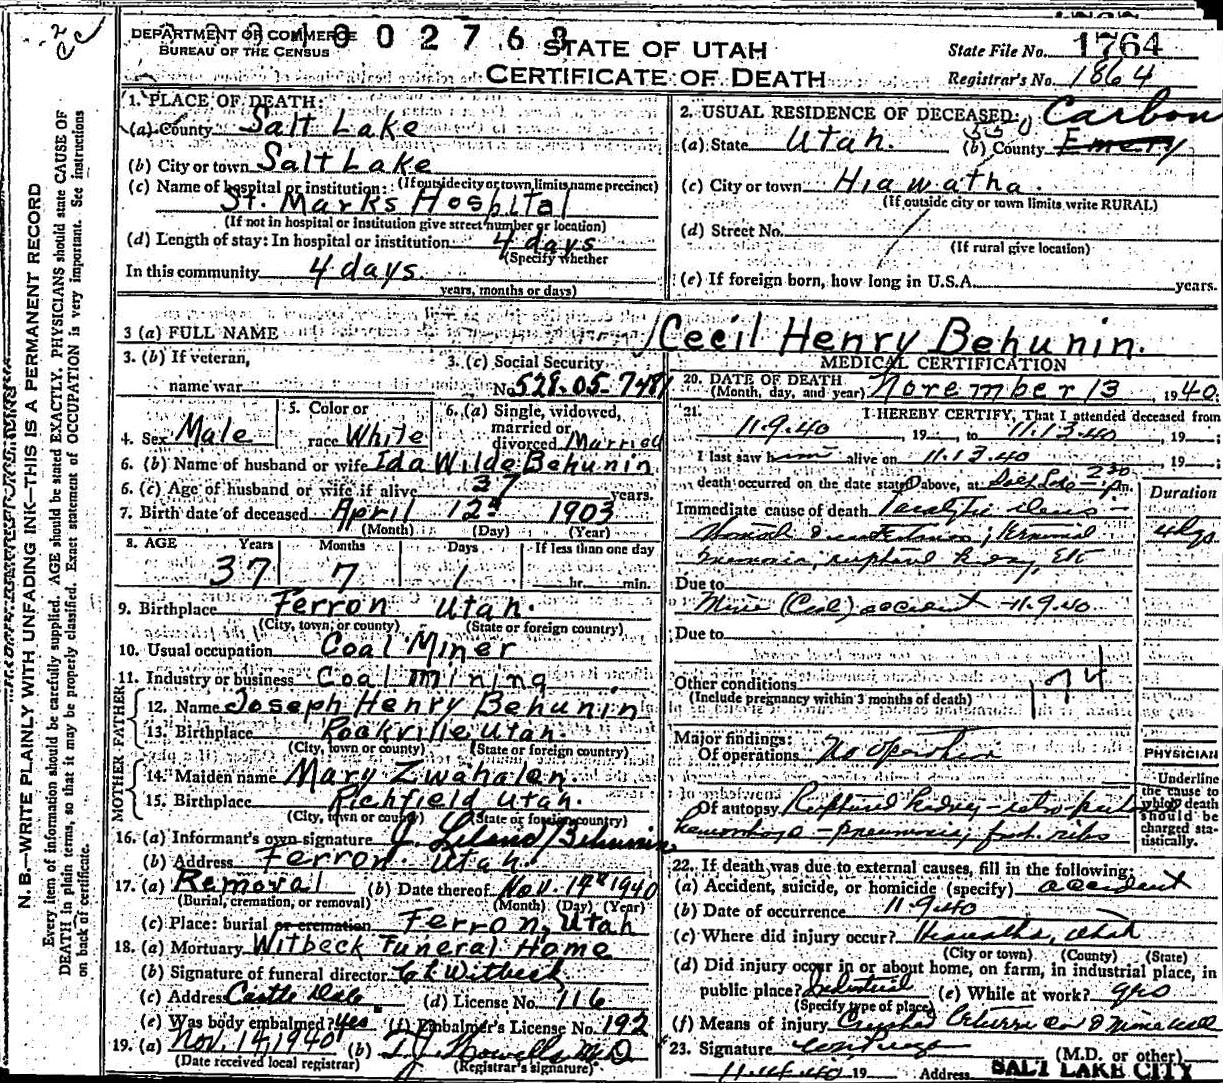 DEPARTMENT OF COMMERCE
BUREAU OF THE CENSUS
STATE OF UTAH
CERTIFICATE OF DEATH
State File No. 1764
Registrar's No. 1864
N. B.—WRITE PLAINLY WITH UNFADING INK—THIS IS A PERMANENT RECORD
Every item of information should be carefully supplied. AGE should be stated EXACTLY. PHYSICIANS should state CAUSE OF
DEATH in plain terms, so that it may be properly classified. Exact statement of OCCUPATION is very important. See instructions
on back of certificate.
1. PLACE OF DEATH:
(a) County Salt Lake
(b) City or town Salt Lake
(If outside city or town limits name precinct)
(c) Name of hospital or institution:
St. Marks Hospital
(If not in hospital or Institution give street number or location)
(d) Length of stay: In hospital or institution 4 days
(Specify whether
In this community 4 days.
years, months or days)
2. USUAL RESIDENCE OF DECEASED: Carbon
(a) State Utah. (b) County Emery
(c) City or town Hiawatha.
(If outside city or town limits write RURAL)
(d) Street No.
(If rural give location)
(e) If foreign born, how long in U.S.A. years.
3 (a) FULL NAME Cecil Henry Behunin.
3. (b) If veteran,
name war
3. (c) Social Security
No. 528-05-7481
4. Sex Male
5. Color or
race White
6. (a) Single, widowed,
married or
divorced Married
6. (b) Name of husband or wife Ida Wilde Behunin
6. (c) Age of husband or wife if alive 37 years.
7. Birth date of deceased April 12 1903
(Month) (Day) (Year)
8. AGE Years Months Days If less than one day
37 7 1 hr. min.
9. Birthplace Ferron Utah.
(City, town, or county) (State or foreign country)
10. Usual occupation Coal Miner
11. Industry or business Coal Mining
FATHER
12. Name Joseph Henry Behunin
13. Birthplace Rockville, Utah.
(City, town or county) (State or foreign country)
MOTHER
14. Maiden name Mary Zwahalen.
15. Birthplace Richfield Utah.
(City, town or county) (State or foreign country)
16. (a) Informant's own signature J. Leland Behunin
(b) Address Ferron Utah
17. (a) Removal (b) Date thereof Nov. 14 1940
(Burial, cremation, or removal) (Month) (Day) (Year)
(c) Place: burial or cremation Ferron, Utah
18. (a) Mortuary Witbeck Funeral Home
(b) Signature of funeral director Witbeck
(c) Address Castle Dale (d) License No. 116
(e) Was body embalmed? yes (f) Embalmer's License No. 192
19. (a) Nov. 14, 1940 (b) T.J. Howells M.D
(Date received local registrar) (Registrar's signature)
MEDICAL CERTIFICATION
20. DATE OF DEATH
(Month, day, and year) November 13, 1940.
21. I HEREBY CERTIFY, That I attended deceased from
11.9.40, 19, to 11.13.40, 19;
I last saw him alive on 11.13.40, 19;
death occurred on the date stated above, at 2 30 Pm.
Duration
Immediate cause of death Paralytic ileus - 4 dys
terminal
pneumonia, ruptured kidney, Etc
Due to
Mine (Coal) accident - 11.9.40
Due to
174
Other conditions
(Include pregnancy within 3 months of death)
Major findings:
Of operations No operation
Of autopsy Ruptured kidney - retro
hemorrhage - pneumonia, ribs
PHYSICIAN
Underline
the cause to
which death
should be
charged sta-
tistically.
22. If death was due to external causes, fill in the following:
(a) Accident, suicide, or homicide (specify) accident
(b) Date of occurrence 11.9.40
(c) Where did injury occur? Hiawatha, Utah
(City or town) (County) (State)
(d) Did injury occur in or about home, on farm, in industrial place, in
public place? Industrial (e) While at work? yes
(Specify type of place)
(f) Means of injury Crushed between car & mine wall
23. Signature (M.D. or other)
11.14.40 19 Address SALT LAKE CITY